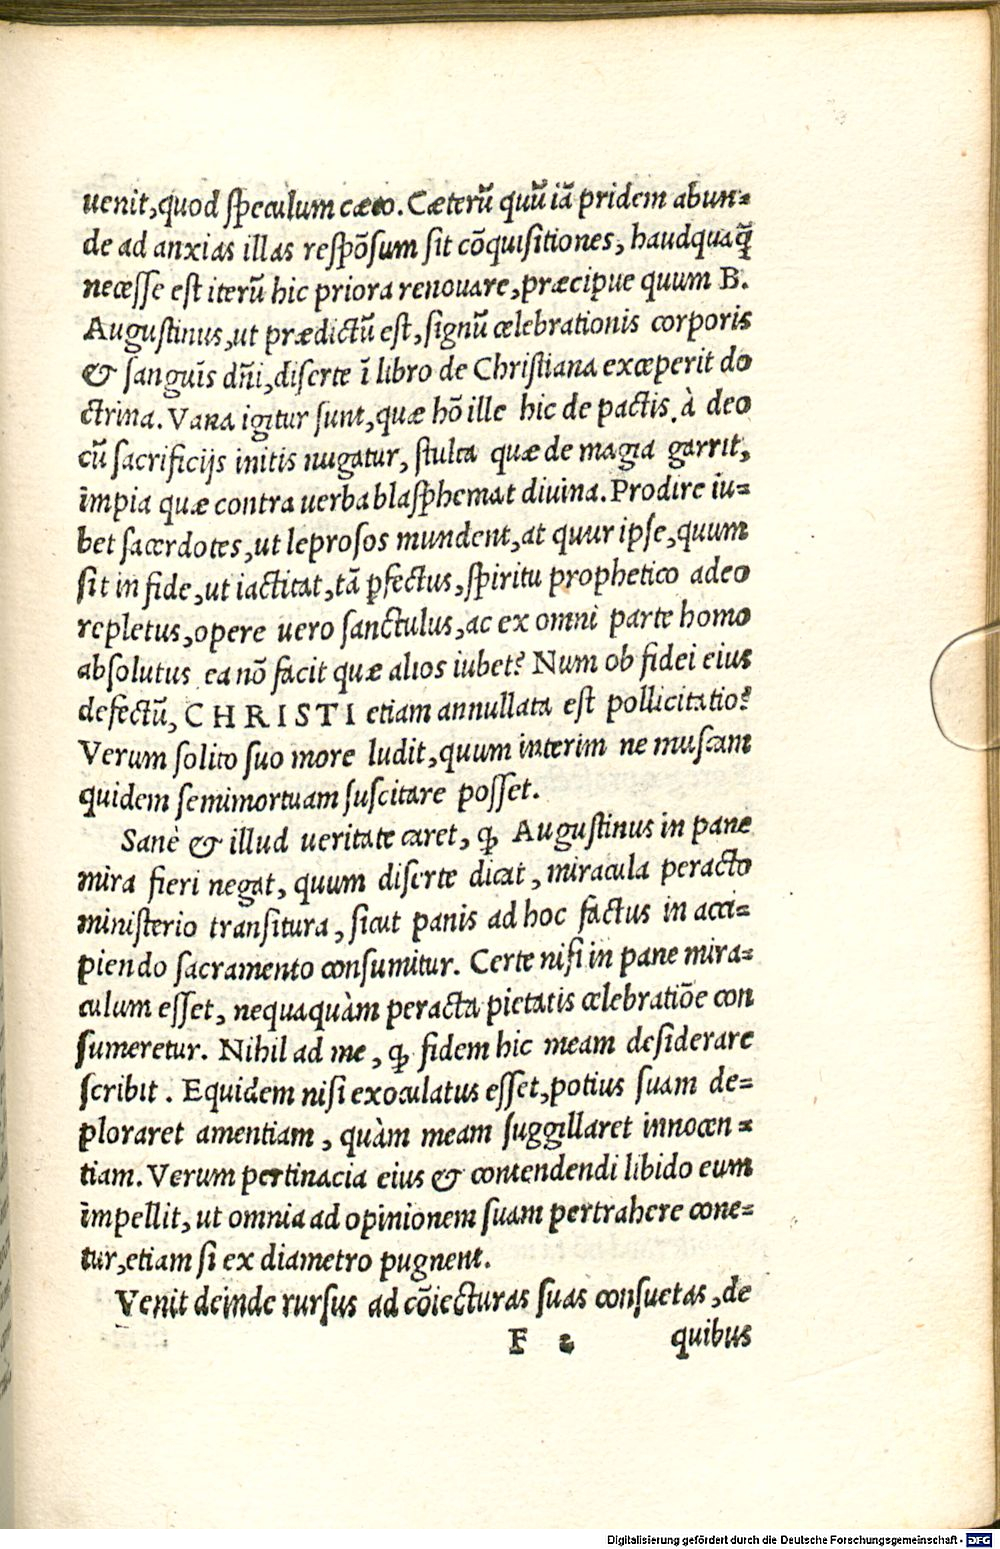 uenit, quod speculum cæco. Cæterũ quũ iã pridem abun-
de ad anxias illas respõsum sit cõquisitiones, haudquaq̃
necesse est iterũ hic priora renouare, præcipue quum B.
Augustinus, ut prædictũ est, signũ celebrationis corporis
& sanguĩs dñi, diserte ĩ libro de Christiana exceperit do
ctrina. Vana igitur sunt, quæ hõ ille hic de pactis à deo
cũ sacrificijs initis nugatur, stulta quæ de magia garrit,
impia quæ contra uerba blasphemat diuina. Prodire iu-
bet sacerdotes, ut leprosos mundent, at quur ipse, quum
sit in fide, ut iactitat, tã ꝑfectus, spiritu prophetico adeo
repletus, opere uero sanctulus, ac ex omni parte homo
absolutus ea nõ facit quæ alios iubet? Num ob fidei eius
defectũ, CHRISTI etiam annullata est pollicitatio?
Verum solito suo more ludit, quum interim ne muscam
quidem semimortuam suscitare posset.
Sanè & illud ueritate caret, ꝙ Augustinus in pane
mira fieri negat, quum diserte dicat, miracula peracto
ministerio transitura, sicut panis ad hoc factus in acci-
piendo sacramento consumitur. Certe nisi in pane mira-
culum esset, nequaquàm peracta pietatis celebratiõe con
sumeretur. Nihil ad me, ꝙ fidem hic meam desiderare
scribit. Equidem nisi exoculatus esset, potius suam de-
ploraret amentiam, quàm meam suggillaret innocen-
tiam. Verum pertinacia eius & contendendi libido eum
impellit, ut omnia ad opinionem suam pertrahere cone-
tur, etiam si ex diametro pugnent.
Venit deinde rursus ad cõiecturas suas consuetas, de
F 2 quibus
Digitalisierung gefördert durch die Deutsche Forschungsgemeinschaft - DFG